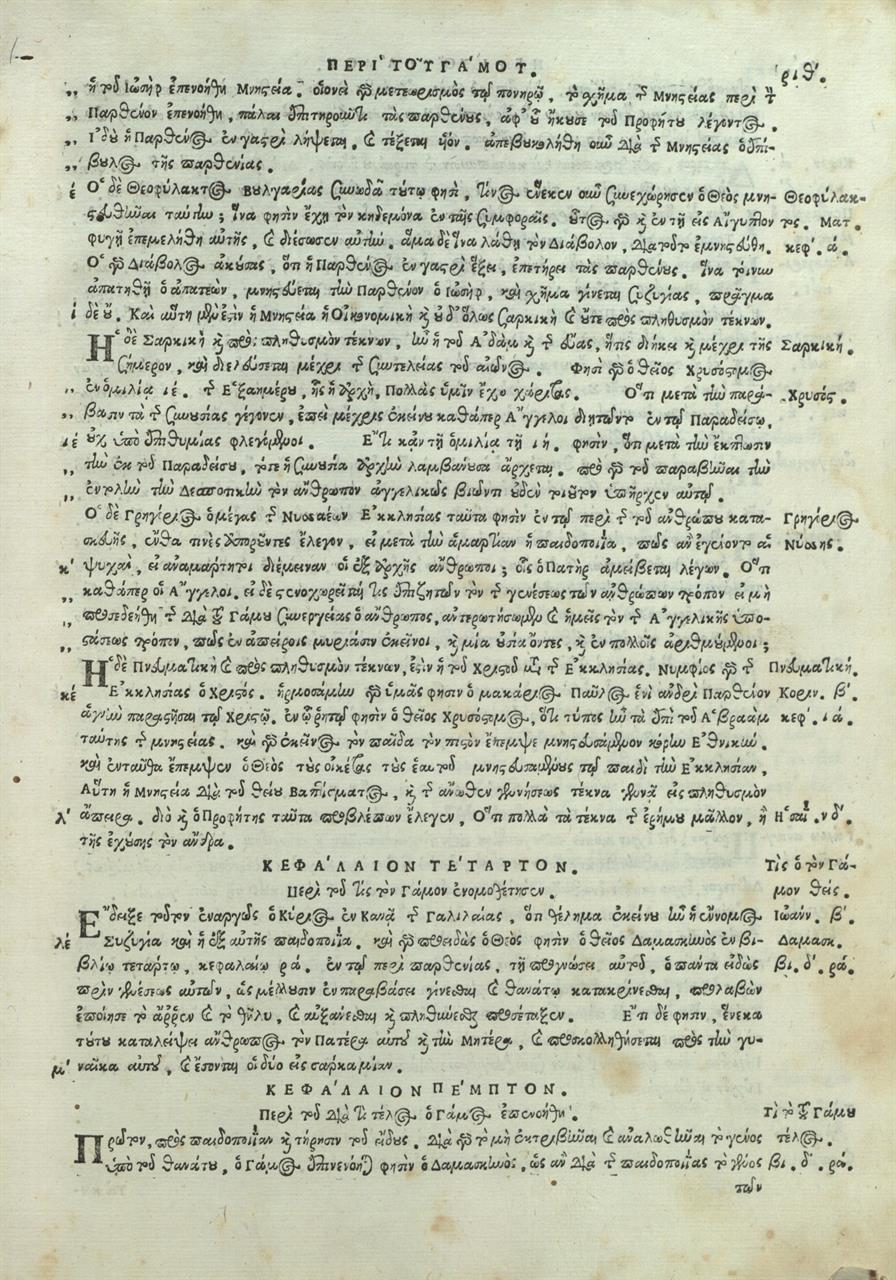 ΠΕΡΙ ΤΟΥ ΓΑΜΟΥ. ριθ΄.
,, ἢ τοῦ Ἰωσὴφ ἐπενοήθη Μνηστεία. οἱονεὶ γὰρ μετεωρισμὸς τῷ πονηρῷ, τὸ σχῆμα τῆς Μνηστείας περὶ τὴν
,, Παρθένον ἐπενοήθη, πάλαι ἐπιτηροῦντι τὰς παρθένους, ἀφ' οὗ ἤκουσε τοῦ Προφήτου λέγοντος.
,, Ἰδοὺ ἡ Παρθένος ἐν γαστρὶ λήψεται, καὶ τέξεται ὑιόν. ἀπεβουκολήθη οὖν διὰ τῆς Μνηστείας ὁ ἐπί-
,, βουλος τῆς παρθενίας.
έ Ὁ δὲ Θεοφύλακτος Βουλγαρίας συνῳδὰ τούτῳ φησὶ, τίνος ἕνεκεν οὖν συνεχώρησεν ὁ Θεὸς μνη- Θεοφύλακ-
στευθῆναι ταύτην; ἵνα φησὶν ἔχῃ τὸν κηδεμόνα ἐν ταῖς συμφοραῖς. οὗτος γὰρ καὶ ἐν τῇ εἰς Αἴγυπτον τος. Ματ.
φυγῇ ἐπεμελήθη αὐτῆς, καὶ διέσωσεν αὐτήν. ἅμα δὲ ἵνα λάθῃ τὸν Διάβολον, διὰ τοῦτο ἐμνηστεύθη. κεφ. ά.
Ὁ γὰρ Διάβολος ἀκούσας, ὅτι ἡ Παρθένος ἐν γαστρὶ ἕξει, ἐπετήρει τὰς παρθένους. ἵνα τοίνυν
ἀπατηθῇ ὁ ἀπατεὼν, μνηστεύεται τὴν Παρθένον ὁ Ἰωσὴφ, καὶ σχῆμα γίνεται συζυγίας, πρᾶγμα
ί δὲ οὔ. Καὶ αὕτη μέν ἐστιν ἡ Μνηστεία ἡ Οἰκονομικὴ καὶ οὐδ' ὅλως σαρκικὴ καὶ οὔτε πρὸς πληθυσμὸν τέκνων.
Ἡ δὲ Σαρκικὴ καὶ πρὸς πληθυσμὸν τέκνων, ἦν ἡ τοῦ Ἀδὰμ καὶ τῆς Εὔας, ἥτις διήκει καὶ μέχρι τῆς Σαρκική.
σήμερον, καὶ διελεύσεται μέχρι τῆς συντελείας τοῦ αἰῶνος. Φησὶ γὰρ ὁ θεῖος Χρυσόστομος
,, ἐν ὁμιλίᾳ ιέ. τῆς Ἑξαημέρου, ἧς ἡ ἀρχὴ, Πολλὰς ὑμῖν ἔχω χάριτας. Ὅτι μετὰ τὴν παρά- Χρυσός.
,, βασιν τὰ τῆς συνουσίας γέγονεν, ἐπεὶ μέχρις ἐκείνου καθάπερ Ἄγγελοι διητῶντο ἐν τῷ Παραδείσῳ,
ιέ οὐχ ὑπὸ ἐπιθυμίας φλεγόμενοι. Ἔτι κἀν τῇ ὁμιλίᾳ τῇ ιή. φησὶν, ὅτι μετὰ τὴν ἔκπτωσιν
,, τὴν ἐκ τοῦ Παραδείσου, τότε ἡ συνουσία ἀρχὴν λαμβάνουσα ἄρχεται. πρὸ γὰρ τοῦ παραβῆναι τὴν
,, ἐντολὴν τὴν Δεσποτικὴν τὸν ἄνθρωπον ἀγγελικῶς βιῶντι οὐδὲν τοιοῦτον ὑπῆρχεν αὐτῷ.
Ὁ δὲ Γρηγόριος ὁ μέγας τῆς Νυσσαέων Ἐκκλησίας ταῦτα φησὶν ἐν τῷ περὶ τῆς τοῦ ἀνθρώπου κατα- Γρηγόριος
σκευῆς, ἔνθα τινὲς ἀποροῦντες ἔλεγον, εἰ μετὰ τὴν ἁμαρτίαν ἡ παιδοποιΐα, πῶς ἂν ἐγένοντο αἱ Νύσσης.
κ΄ ψυχαὶ, εἰ ἀναμάρτητοι διέμειναν οἱ ἐξ ἀρχῆς ἄνθρωποι; οἷς ὁ Πατὴρ ἀμείβεται λέγων. Ὅτι
,, καθάπερ οἱ Ἄγγελοι. εἰ δὲ στενοχωρεῖταί τις ἐπιζητῶν τὸν τῆς γενέσεως τῶν ἀνθρώπων τρόπον εἰ μὴ
,, προσεδεήθη τῆς διὰ τοῦ Γάμου συνεργείας ὁ ἄνθρωπος, ἀντερωτήσωμεν καὶ ἡμεῖς τὸν τῆς Ἀγγελικῆς ὑπο-
,, στάσεως τρόπον, πῶς ἐν ἀπείροις μυριάσιν ἐκεῖνοι, καὶ μία οὐσία ὄντες, καὶ ἐν πολλοῖς ἀριθμούμενοι;
Ἡ δὲ Πνευματικὴ καὶ πρὸς πληθυσμὸν τέκνων, ἐστὶν ἡ τοῦ Χριστοῦ μετὰ τῆς Ἐκκλησίας. Νυμφίος γὰρ τῆς Πνευματική.
κέ Ἐκκλησίας ὁ Χριστός. ἡρμοσάμην γὰρ ὑμᾶς φησὶν ὁ μακάριος Παῦλος ἑνὶ ἀνδρὶ Παρθένον Κοριν. β΄.
ἁγνὴν παραστῆσαι τῷ Χριστῷ. ἐν ᾧ ῥητῷ φησὶν ὁ θεῖος Χρυσόστομος, ὅτι τύπος ἦν τὰ ἐπὶ τοῦ Ἀβραὰμ κεφ. ιά.
ταύτης τῆς μνηστείας. καὶ γὰρ ἐκεῖνος τὸν παῖδα τὸν πιστὸν ἔπεμψε μνηστευσάμενον κόρην Ἐθνικήν.
καὶ ἐνταῦθα ἔπεμψεν ὁ Θεὸς τοὺς οἰκέτας τοὺς ἑαυτοῦ μνηστευσαμένους τῷ παιδὶ τὴν Ἐκκλησίαν,
Αὕτη ἡ Μνηστεία διὰ τοῦ θείου Βαπτίσματος, καὶ τῆς ἄνωθεν γεννήσεως τέκνα γεννᾷ εἰς πληθυσμὸν
λ΄ ἄπειρα. διὸ καὶ ὁ Προφήτης ταῦτα προβλέπων ἔλεγεν, Ὅτι πολλὰ τὰ τέκνα τῆς ἐρήμου μᾶλλον, ἢ Ἡσαΐ. νδ΄.
τῆς ἐχούσης τὸν ἄνδρα.
ΚΕΦΑΛΑΙΟΝ ΤΕΤΑΡΤΟΝ. Τίς ὁ τὸν Γά-
Περὶ τοῦ τίς τὸν Γάμον ἐνομοθέτησεν. μον θείς.
Ἔδειξε τοῦτον ἐναργῶς ὁ Κύριος ἐν Κανᾷ τῆς Γαλιλαίας, ὅτι θέλημα ἐκείνου ἦν ἡ ἔννομος Ἰωάν. β΄.
λέ Συζυγία καὶ ἡ ἐξ αὐτῆς παιδοποιΐα. καὶ γὰρ προειδὼς ὁ Θεὸς φησὶν ὁ θεῖος Δαμασκηνὸς ἐν βι- Δαμασκ.
βλίῳ τετάρτῳ, κεφαλαίῳ ρά. ἐν τῷ περὶ παρθενίας, τῇ προγνώσει αὐτοῦ, ὁ πάντα εἰδὼς βι. δ΄. ρά.
πρὶν γενέσεως αὐτῶν, ὡς μέλλουσιν ἐν παραβάσει γίνεσθαι καὶ θανάτῳ κατακρίνεσθαι, προλαβὼν
ἐποίησε τὸ ἄῤῥεν καὶ τὸ θῆλυ, καὶ αὐξάνεσθαι καὶ πληθύνεσθαι προσέταξεν. Ἔτι δέ φησιν, ἕνεκα
τούτου καταλείψει ἄνθρωπος τὸν Πατέρα αὐτοῦ καὶ τὴν Μητέρα, καὶ προσκολληθήσεται πρὸς τὴν γυ-
μ΄ ναῖκα αὐτοῦ, καὶ ἔσονται οἱ δύο εἰς σάρκα μίαν.
ΚΕΦΑΛΑΙΟΝ ΠΕΜΠΤΟΝ.
Περὶ τοῦ διὰ τί τέλος ὁ Γάμος ἐπενοήθη. Τί τὸ τοῦ Γάμου
Πρῶτον, πρὸς παιδοποιΐαν καὶ τήρησιν τοῦ εἴδους. διὰ γὰρ τὸ μὴ ἐκτριβῆναι καὶ ἀναλωθῆναι τὸ γένος τέλος.
ὑπὸ τοῦ θανάτου, ὁ Γάμος ἐπινενόηται φησὶν ὁ Δαμασκηνὸς, ὡς ἂν διὰ τῆς παιδοποιΐας τὸ γένος βι. δ΄. ρά.
τῶν